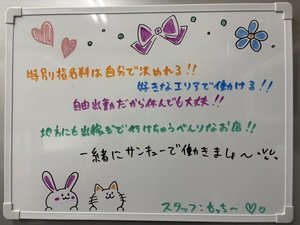 特別指名料は自分で決めれる!!
好きなエリアで働ける!!
自由出勤だから休んでも大丈夫!!
地方にも出稼ぎで行けちゃうべんりなお店!!
一緒にサンキューで働きましょ〜
スタッフ:もっちー